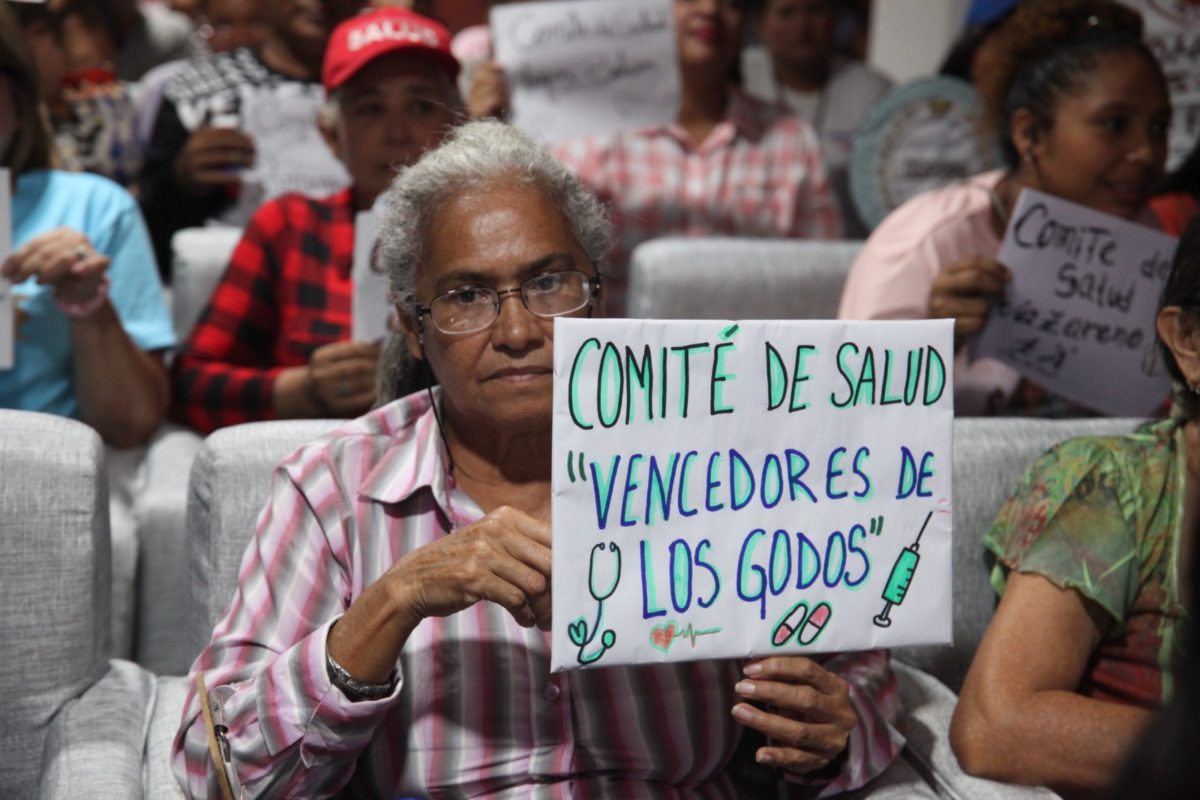 SALUD
Comite de Salud
COMITÉ DE SALUD
"VENCEDORES DE
LOS GODOS"
Comite de
Salud
Nazareno